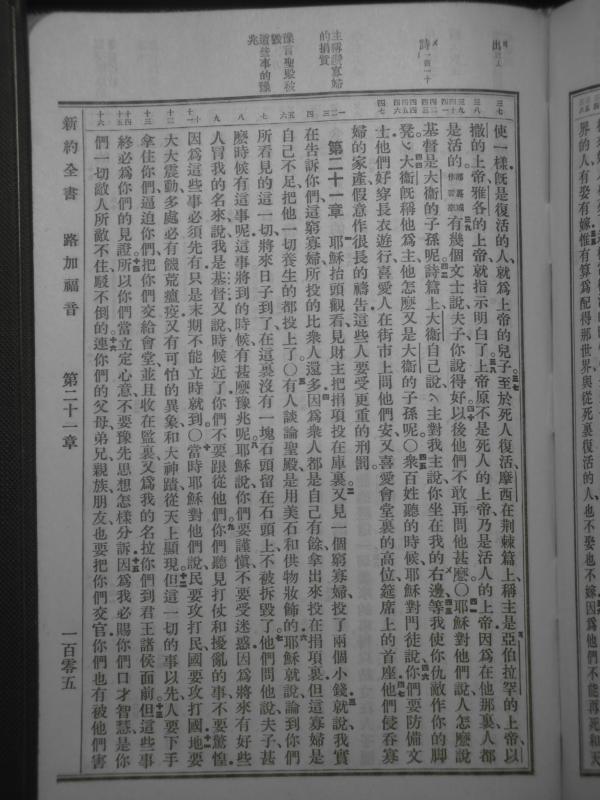 使一樣既是復活的人、就爲上帝的兒子至於死人復活摩西在荊棘篇上稱主是亞伯拉罕的上帝以
撒的上帝雅各的上帝就指示明白了上帝原不是死人的上帝乃是活人的上帝因爲在他那裏人都
是活的有幾個文士說夫子你說得好以後他們不敢再問他甚麼〇耶穌對他們說人怎麼說
基督是大衛的子孫呢詩篇上大衛自己說主對我主說你坐在我的右邊等我使你仇敵作你的脚
凳大衛既稱他爲主他怎麼又是大衛的子孫呢〇衆百姓聽的時候耶穌對門徒說你們要防備文
士他們好穿長衣遊行喜愛人在街市上問他們安又喜愛會堂裏的高位筵席上的首座他們侵吞寡
婦的家產假意作很長的禱告這些人要受更重的刑罰
主稱讚寡婦的捐貲
第二十一章 耶穌抬頭觀看見財主把捐項投在庫裏又見一個窮寡婦投了兩個小錢就說我實
在告訴你們這窮寡婦所投的比衆人還多因爲衆人都是自己有餘拿出來投在捐項裏但這寡婦是
自己不足把他一切養生的都投上了〇有人談論聖殿是用美石和供物妝飾的耶穌就說論到你們
豫言聖殿被毀
這些事的豫兆
所看見的這一切將來日子到了在這裏沒有一塊石頭留在石頭上不被拆毀了他們問他說夫子甚
麼時候有這事呢這事將到的時候有甚麼豫兆呢耶穌說你們要謹慎不要受迷惑因爲將來有好些
人冒我的名來說我是基督又說時候近了你們不要跟從他們你們聽見打仗和擾亂的事不要驚惶
因爲這些事必須先有只是末期不能立時就到〇當時耶穌對他們說民要攻打民國要攻打國地要
大大震動多處必有饑荒瘟疫又有可怕的異象和大神蹟從天上顯現但這一切的事以先人要下手
拿住你們逼迫你們把你們交給會堂並且收在監裏又爲我的名拉你們到君王諸侯面前但這些事
終必爲你們的見證所以你們當立定心意不要豫先思想怎樣分訴因爲我必賜你們口才智慧是你
們一切敵人所敵不住駁不倒的連你們的父母弟兄親族朋友也要把你們交官你們也有被他們害
新約全書 路加福音 第二十一章 一百零五